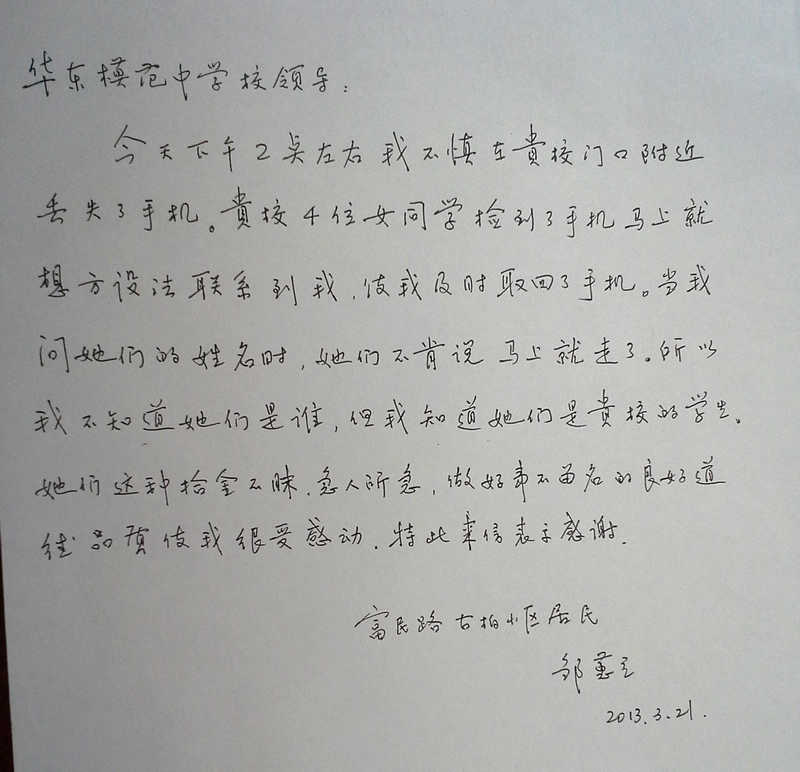 华东模范中学校领导:
今天下午2点左右我不慎在貴校门口附近
丢失了手机。貴校4位女同学捡到了手机马上就
想方设法联系到我,使我及时取回了手机。当我
问她们的姓名时,她们不肯说马上就走了。所以
我不知道她们是谁,但我知道她们是貴校的学生。
她们这种拾金不昧、急人所急,做好事不留名的良好道
德品质使我很受感动.特此来信表示感谢.
富民路古柏小区居民
邹蕙
2013.3.21.